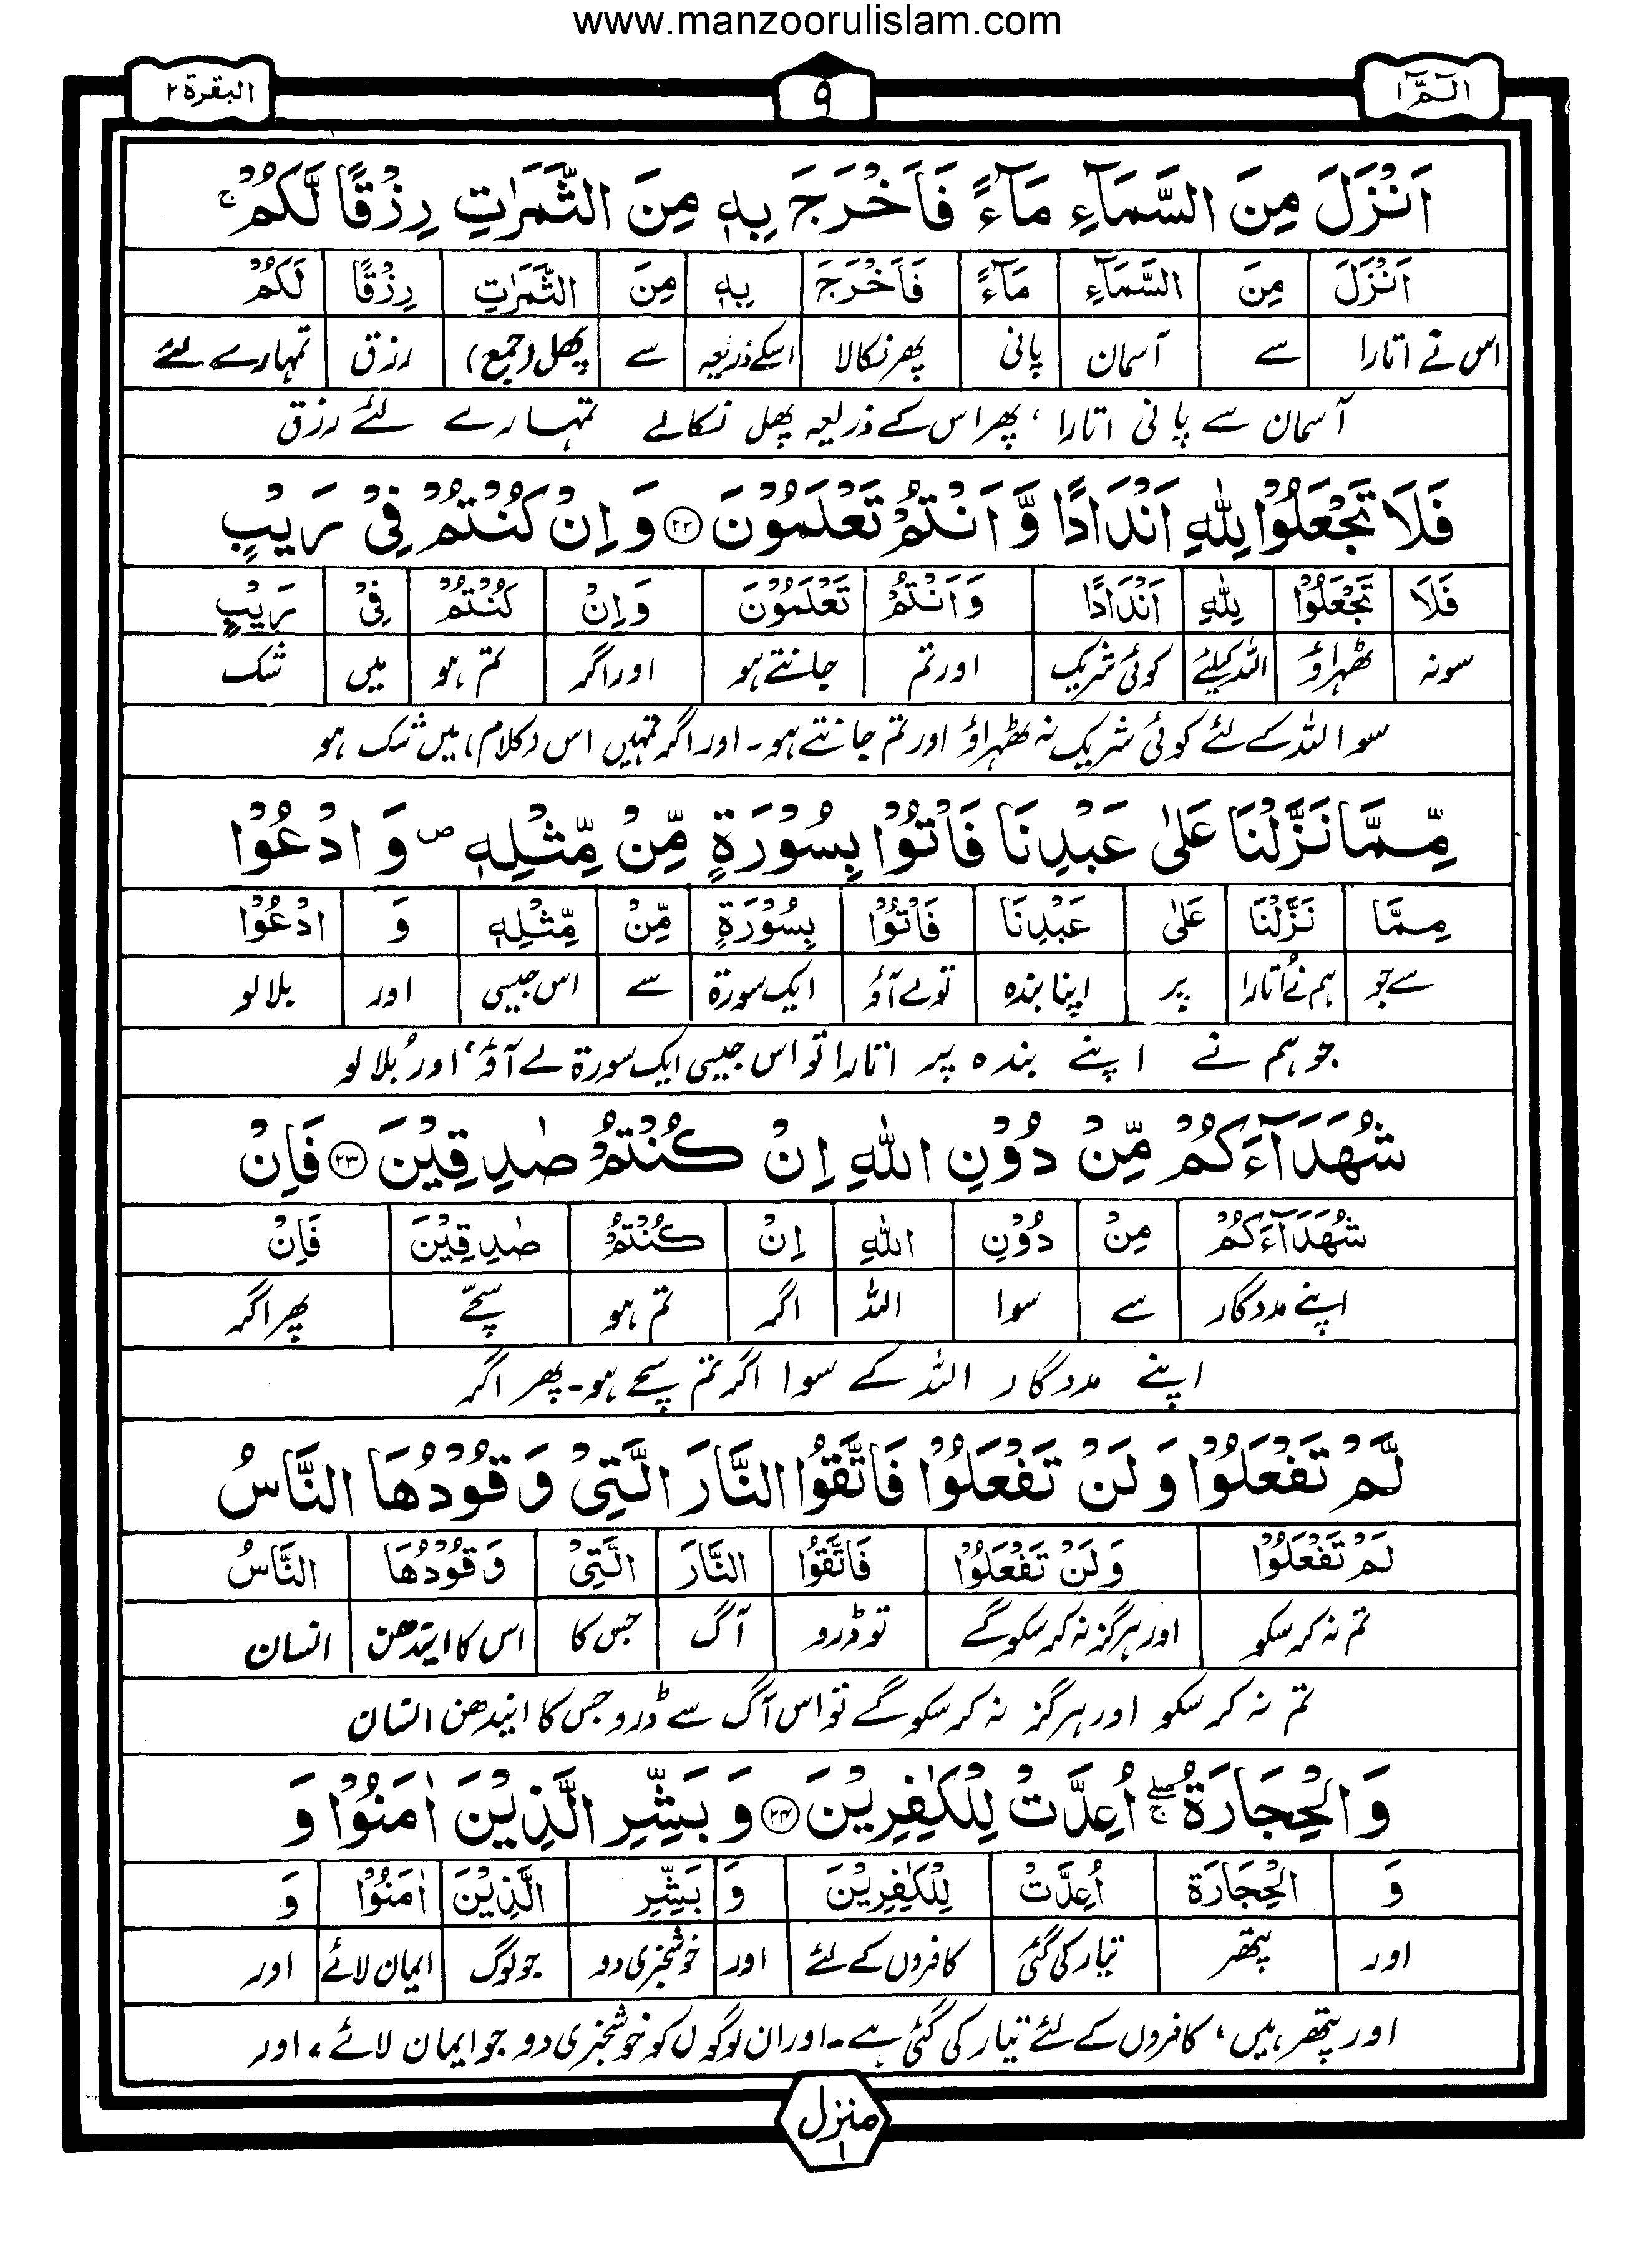 www.manzoorulislam.com
الٓـمّٓ ۱
۹
البقرة ۲
اَنْزَلَ مِنَ السَّمَآءِ مَآءً فَاَخْرَجَ بِهٖ مِنَ الثَّمَرٰتِ رِزْقًا لَّكُمْ ۚ
اَنْزَلَ مِنَ السَّمَآءِ مَآءً فَاَخْرَجَ بِهٖ مِنَ الثَّمَرٰتِ رِزْقًا لَكُمْ
اس نے اتارا سے آسمان پانی پھر نکالا اسکے ذریعہ سے پھل (جمع) رزق تمہارے لئے
آسمان سے پانی اتارا ، پھر اس کے ذریعہ پھل نکالے تمہارے لئے رزق
فَلَا تَجْعَلُوْا لِلّٰهِ اَنْدَادًا وَّ اَنْتُمْ تَعْلَمُوْنَ ۲۲ وَ اِنْ كُنْتُمْ فِیْ رَیْبٍ
فَلَا تَجْعَلُوْا لِلّٰهِ اَنْدَادًا وَ اَنْتُمْ تَعْلَمُوْنَ وَ اِنْ كُنْتُمْ فِیْ رَیْبٍ
سو نہ ٹھہراؤ اللہ کیلئے کوئی شریک اور تم جانتے ہو اور اگر تم ہو میں شک
سو اللہ کے لئے کوئی شریک نہ ٹھہراؤ اور تم جانتے ہو۔ اور اگر تمہیں اس (کلام) میں شک ہو
مِّمَّا نَزَّلْنَا عَلٰى عَبْدِنَا فَاْتُوْا بِسُوْرَةٍ مِّنْ مِّثْلِهٖ ص وَ ادْعُوْا
مِمَّا نَزَّلْنَا عَلٰى عَبْدِنَا فَاْتُوْا بِسُوْرَةٍ مِّنْ مِّثْلِهٖ وَ ادْعُوْا
سے جو ہم نے اُتارا پر اپنا بندہ تو لے آؤ ایک سورۃ سے اس جیسی اور بلالو
جو ہم نے اپنے بندہ پر اتارا تو اس جیسی ایک سورۃ لے آؤ ، اور بُلا لو
شُهَدَآءَكُمْ مِّنْ دُوْنِ اللّٰهِ اِنْ كُنْتُمْ صٰدِقِیْنَ ۲۳ فَاِنْ
شُهَدَآءَكُمْ مِنْ دُوْنِ اللّٰهِ اِنْ كُنْتُمْ صٰدِقِیْنَ فَاِنْ
اپنے مددگار سے سوا اللہ اگر تم ہو سچّے پھر اگر
اپنے مددگار اللہ کے سوا اگر تم سچے ہو۔ پھر اگر
لَّمْ تَفْعَلُوْا وَ لَنْ تَفْعَلُوْا فَاتَّقُوا النَّارَ الَّتِیْ وَ قُوْدُهَا النَّاسُ
لَمْ تَفْعَلُوْا وَ لَنْ تَفْعَلُوْا فَاتَّقُوا النَّارَ الَّتِیْ وَ قُوْدُهَا النَّاسُ
تم نہ کر سکو اور ہرگز نہ کر سکو گے تو ڈرو آگ جس کا اس کا ایندھن انسان
تم نہ کر سکو اور ہرگز نہ کر سکو گے تو اس آگ سے ڈرو جس کا ایندھن انسان
وَ الْحِجَارَةُ ۖۚ اُعِدَّتْ لِلْكٰفِرِیْنَ ۲۴ وَ بَشِّرِ الَّذِیْنَ اٰمَنُوْا وَ
وَ الْحِجَارَة اُعِدَّتْ لِلْكٰفِرِیْنَ وَ بَشِّرِ الَّذِیْنَ اٰمَنُوْا وَ
اور پتھر تیار کی گئی کافروں کے لئے اور خوشخبری دو جو لوگ ایمان لائے اور
اور پتھر ہیں ، کافروں کے لئے تیار کی گئی ہے۔ اور ان لوگوں کو خوشخبری دو جو ایمان لائے ، اور
منزل ۱